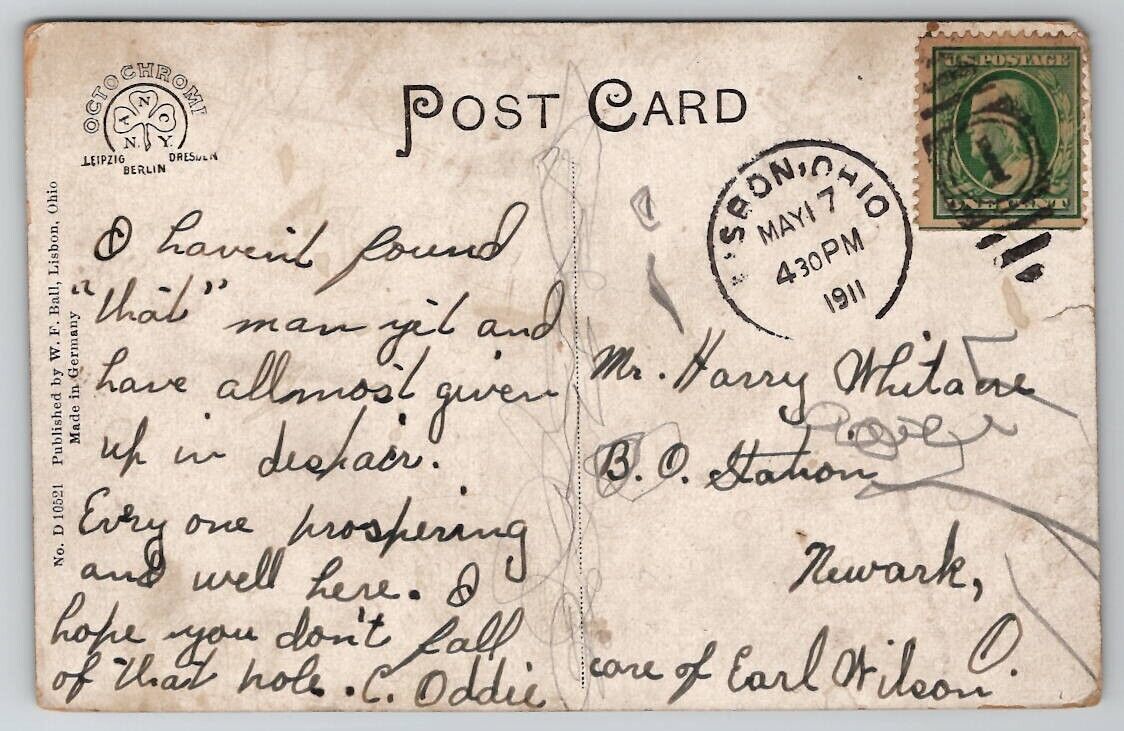 OCTOCHROME
N
A N C
N. Y.
LEIPZIG DRESDEN
BERLIN
POST CARD
U.S. POSTAGE
1
ONE CENT
LISBON, OHIO
MAY 17
430 PM
1911
No. D 10521 Published by W. F. Ball, Lisbon, Ohio
Made in Germany
I haven't found
"that" man yet and
have allmost given
up in despair.
Evry one prospering
and well here. I
hope you don't fall
of that pole. C. Oddie
Mr. Harry Whitacre
B. O. Station
Newark,
O.
care of Earl Wilson